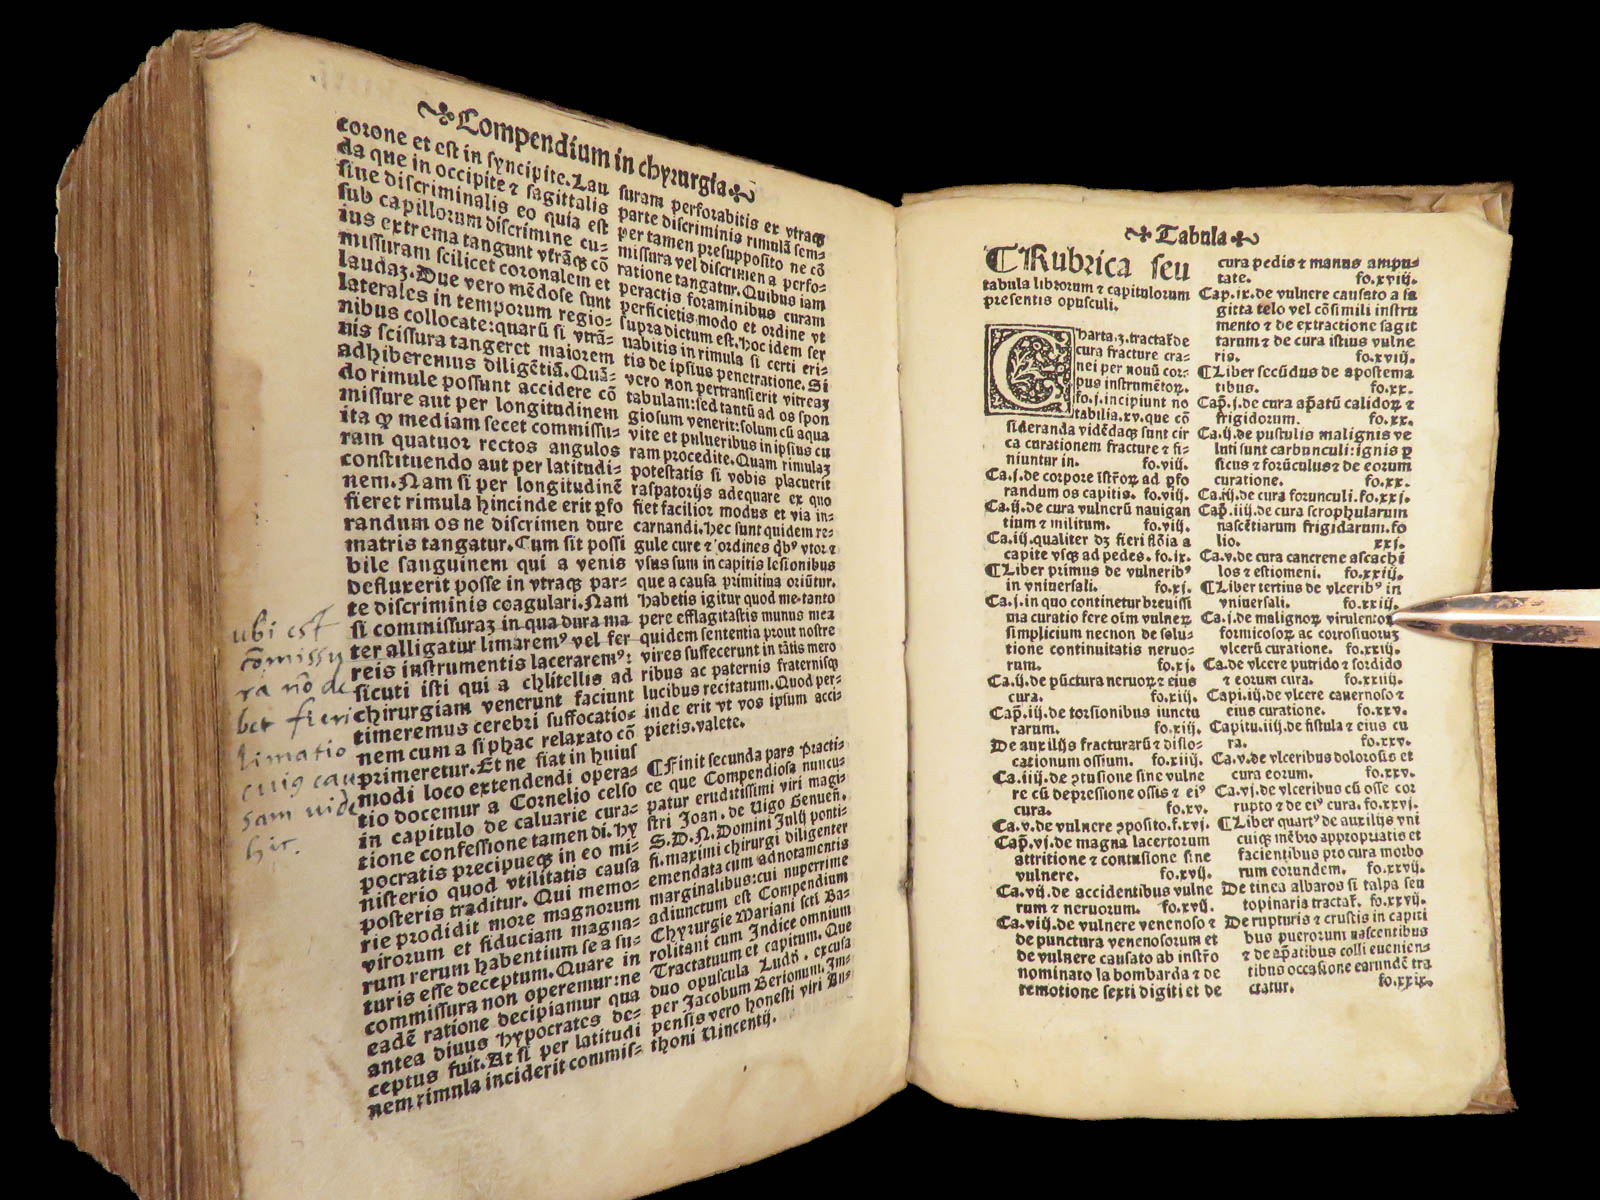 Compendium in chyrurgia
corone et est in syncipite. Lau
da que in occipite ⁊ sagittalis
siue discriminalis eo quia est
sub capillorum discrimine cu⸗
ius extrema tangunt vtrãqꝫ cõ
missuram scilicet coronalem et
laudaꝫ. Due vero mẽdose sunt
laterales in temporum regio⸗
nibus collocate: quarũ si vtrã⸗
nis scissura tangeret maiorem
adhiberemus diligẽtiã. Quã⸗
do rimule possunt accidere cõ
missure aut per longitudinem
ita ꝙ mediam secet commissu⸗
ram quatuor rectos angulos
constituendo aut per latitudi⸗
nem. Nam si per longitudinẽ
fieret rimula hincinde erit ꝑfo
randum os ne discrimen dure
matris tangatur. Cum sit possi
bile sanguinem qui a venis
defluxerit posse in vtraqꝫ par⸗
te discriminis coagulari. Nam
si commissuraꝫ in qua dura ma
ter alligatur limaremꝰ vel fer
reis instrumentis laceraremꝰ:
sicuti isti qui a chlitellis ad
chirurgiam venerunt faciunt
timeremus cerebri suffocatio⸗
nem cum a siphac relaxato cõ
primeretur. Et ne fiat in huius
modi loco extendendi opera⸗
tio docemur a Cornelio celso
in capitulo de caluarie cura⸗
tione confessione tamen di. hy
pocratis precipueqꝫ in eo mi⸗
nisterio quod vtilitatis causa
posteris traditur. Qui memo⸗
rie prodidit more magnorum
virorum et fiduciam magna⸗
rum rerum habentium se a su⸗
turis esse deceptum. Quare in
commissura non operemur: ne
eadẽ ratione decipiamur qua
antea diuus hypocrates de⸗
ceptus fuit. At si per latitudi
nem rimula inciderit commis⸗
suram perforabitis ex vtraqꝫ
parte discriminis rimulã sem⸗
per tamen presupposito ne cõ
missura vel discrimen a perfo⸗
ratione tangatur. Quibus iam
peractis foraminibus curam
perficietis modo et ordine vt
supra dictum est. hoc idem ser
uabitis in rimula si certi eri⸗
tis de ipsius penetratione. Si
vero non pertransierit vitreaꝫ
tabulam: sed tantũ ad os spon
giosum venerit: solum cũ aqua
vite et pulueribus in ipsius cu
ram procedite. Quam rimulaꝫ
potestatis si vobis placuerit
raspatorijs adequare ex quo
fiet facilior modus et via in⸗
carnandi. hec sunt quidem re⸗
gule cure ⁊ ordines qͥbꝰ vtor ⁊
vsus sum in capitis lesionibus
que a causa primitiua oriũtur.
habetis igitur quod me tanto
pere efflagitastis munus mea
quidem sententia prout nostre
vires suffecerunt in tãtis mero
ribus ac paternis fraternisqꝫ
lucibus recitatum. Quod per⸗
inde erit vt vos ipsum acci⸗
pietis. valete.
¶Finit secunda pars Practi⸗
ce que Compendiosa nuncu⸗
patur eruditissimi viri magi⸗
stri Joan. de Uigo Genueñ.
S. D. N. Domini Julij ponti⸗
fi. maximi chirurgi diligenter
emendata cum adnotamentis
marginalibus: cui nuperrime
adiunctum est Compendium
Chyrurgie Mariani scti Ba⸗
rolitani cum Indice omnium
Tractatuum et capitum. Que
duo opuscula Lugd̃. excusa
per Jacobum Berionum. Im⸗
pensis vero honesti viri An⸗
thoni Uincentij.
ubi est
cõmissu
ra nõ de
bet fieri
limatio
cuiꝰ cau
sam vide
hic.
Tabula
¶Rubrica seu
tabula librorum ⁊ capitulorum
presentis opusculi.
Charta.ꝫ. tractat̃ de
cura fracture cra⸗
nei per nouũ cor⸗
pus instrumẽtoꝝ.
fo.j. incipiunt no
tabilia.xv. que cõ
sideranda vidẽdaqꝫ sunt cir
ca curationem fracture ⁊ fi⸗
niuntur in. fo.viij.
Ca.j. de corpore ĩstr̃oꝝ ad ꝑfo
randum os capitis. fo.viij.
Ca.ij. de cura vulnerũ nauigan
tium ⁊ militum. fo.viij.
Ca.iij. qualiter dꝫ fieri flõia a
capite vsqꝫ ad pedes. fo.ix.
¶Liber primus de vulneribꝰ
in vniuersali. fo.xj.
Ca.j. in quo continetur breuissi
ma curatio fere oĩm vulnerꝝ
simplicium necnon de solu⸗
tione continuitatis neruo⸗
rum. fo.xj.
Ca.ij. de pũctura neruoꝝ ⁊ eius
cura. fo.xiij.
Cap̃.iij. de torsionibus iunctu
rarum. fo.xiij.
De auxilijs fracturarũ ⁊ dislo⸗
cationum ossium. fo.xiij.
Ca.iiij. de ꝯtusione sine vulne
re cũ depressione ossis ⁊ eiꝰ
cura. fo.xv.
Ca.v. de vulnere ꝯposito. f.xvj.
Cap̃.vj. de magna lacertorum
attritione ⁊ contusione sine
vulnere. fo.xvij.
Ca.vij. de accidentibus vulne
rum ⁊ neruorum. fo.xvij.
Ca.viij. de vulnere venenoso ⁊
de punctura venenosorum et
de vulnere causato ab instr̃o
nominato la bombarda ⁊ de
remotione sexti digiti et de
cura pedis ⁊ manus ampu⸗
tate. fo.xviij.
Cap.ix. de vulnere causato a sa
gitta telo vel cõsimili instru
mento ⁊ de extractione sagit
tarum ⁊ de cura istius vulne
ris. fo.xviij.
¶Liber secũdus de apostema
tibus. fo.xx.
Cap̃.j. de cura ap̃atũ calidoꝝ ⁊
frigidorum. fo.xx.
Ca.ij. de pustulis malignis ve
luti sunt carbunculi: ignis ꝑ
sicus ⁊ forũculus ⁊ de eorum
curatione. fo.xx.
Ca.iij. de cura forunculi. fo.xxj.
Cap̃.iiij. de cura scrophularum
nascẽtiarum frigidarum. fo
lio. xxj.
Ca.v. de cura cancrene ascachi
los ⁊ estiomeni. fo.xxiij.
¶Liber tertius de vlceribꝰ in
vniuersali. fo.xxiij.
Ca.j. de malignoꝝ virulentoꝝ
formicosoꝝ ac corrosiuoruꝫ
vlcerũ curatione. fo.xxiij.
Ca. de vlcere putrido ⁊ sordido
⁊ eorum cura. fo.xxiiij.
Capi.iij. de vlcere cauernoso ⁊
eius curatione. fo.xxv.
Capitu.iiij. de fistula ⁊ eius cu
ra. fo.xxv.
Ca.v. de vlceribus dolorosis et
cura eorum. fo.xxv.
Ca.vj. de vlceribus cũ osse cor
rupto ⁊ de eiꝰ cura. fo.xxvj.
¶Liber quartꝰ de auxilijs vni
cuiqꝫ mẽbro appropriatis et
facientibus pro cura morbo
rum eorundem. fo.xxvij.
De tinea albaros si talpa seu
topinaria tractat̃. fo.xxvij.
De rupturis ⁊ crustis in capiti
bus puerorum nascentibus
⁊ de ap̃atibus colli euenien⸗
tibus occasione earundẽ tra
ctatur. fo.xxix.